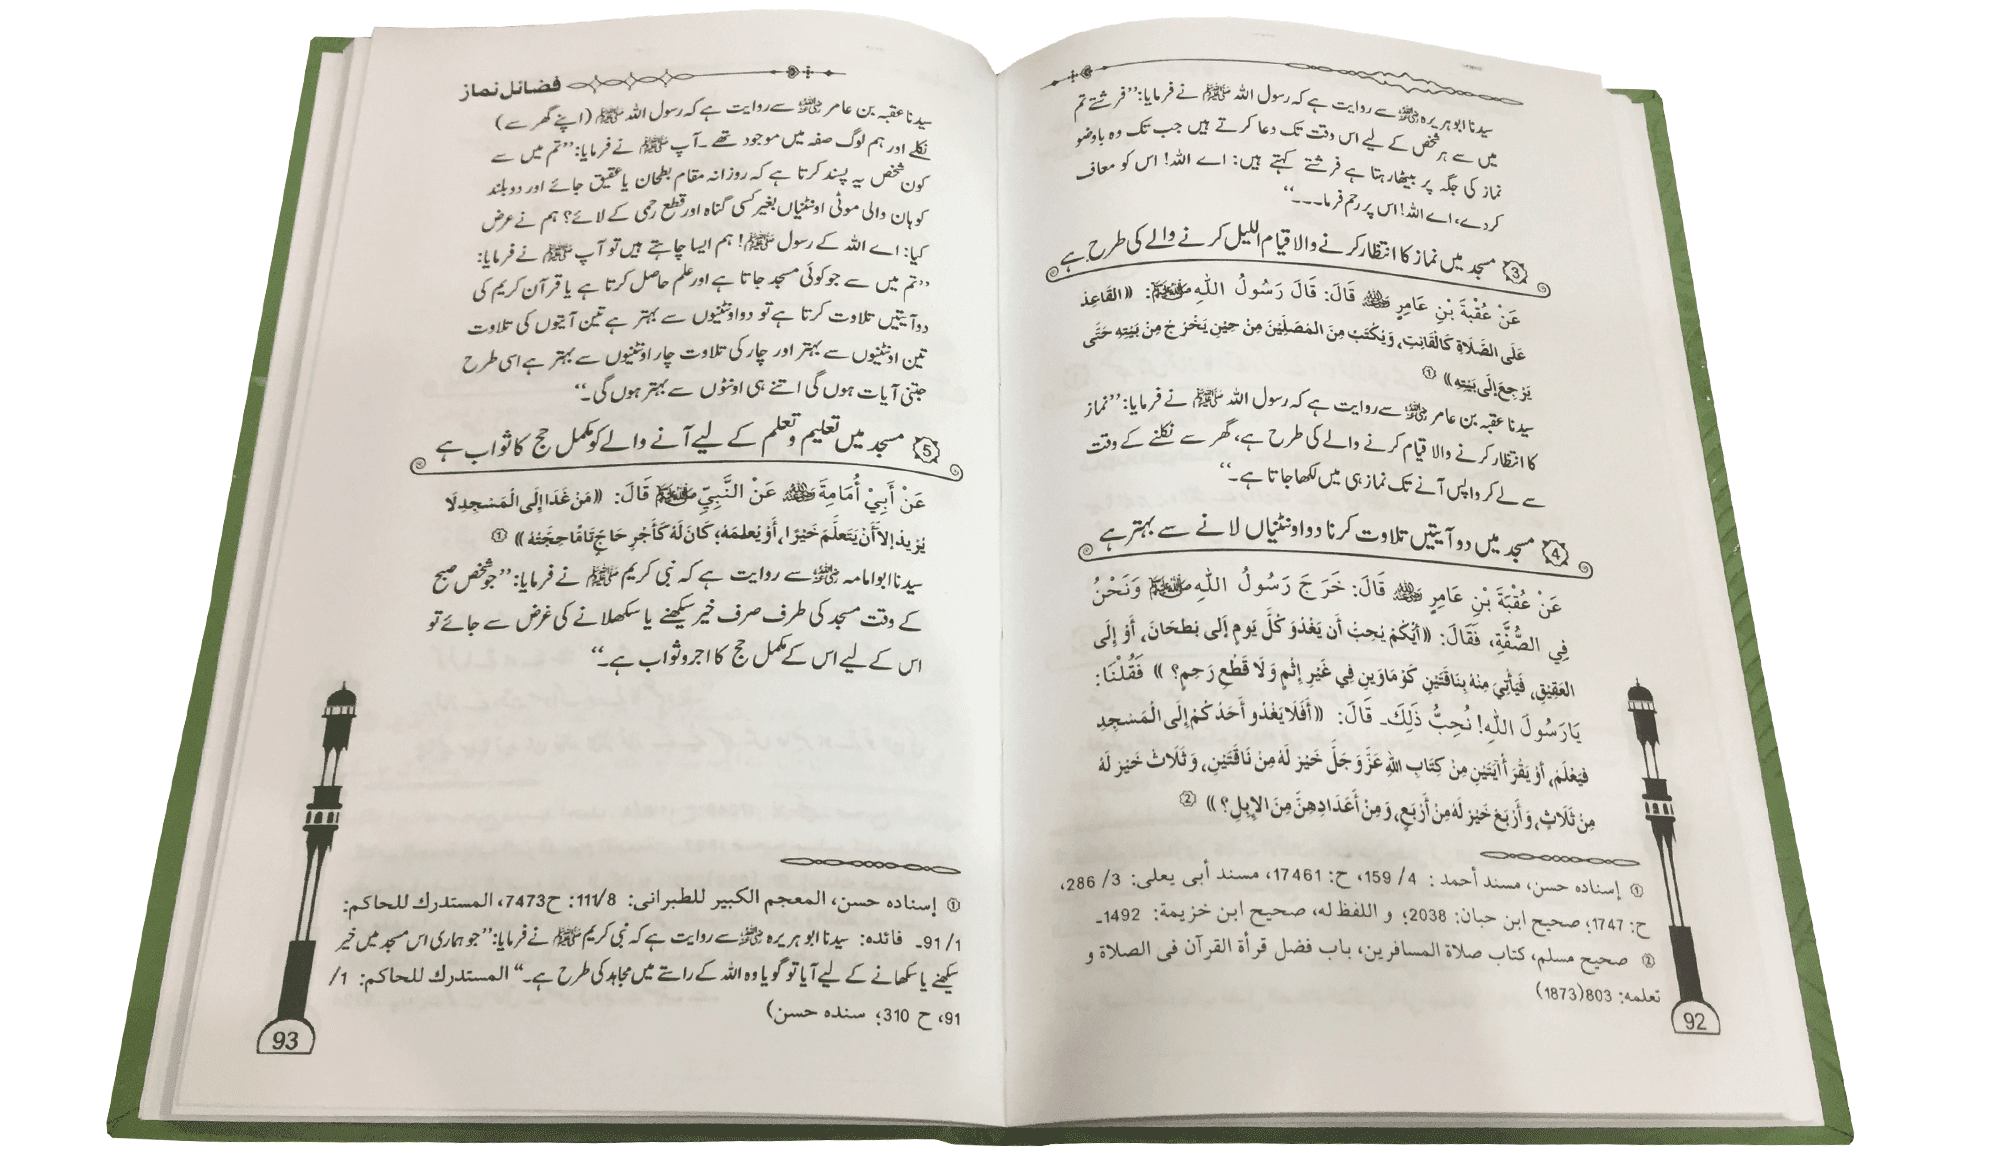 سیدنا ابو ہریرہ ﷜ سے روایت ہے کہ رسول اللہ ﷺ نے فرمایا: ’’فرشتے تم
میں سے ہر شخص کے لیے اس وقت تک دعا کرتے ہیں جب تک وہ باوضو
نماز کی جگہ پر بیٹھا رہتا ہے فرشتے کہتے ہیں: اے اللہ! اس کو معاف
کردے، اے اللہ! اس پر رحم فرما۔۔۔‘‘
③ مسجد میں نماز کا انتظار کرنے والا قیام اللیل کرنے والے کی طرح ہے
عَنْ عُقْبَةَ بْنِ عَامِرٍ ﷜ قَالَ: قَالَ رَسُولُ اللّٰهِ ﷺ: ((القَاعِدُ
عَلَى الصَّلَاةِ كَالْقَانِتِ، وَيُكْتَبُ مِنَ المُصَلِّيْنَ مِنْ حِيْنِ يَخْرُجُ مِنْ بَيْتِهِ حَتَّى
يَرْجِعَ إِلَى بَيْتِهِ)) ①
سیدنا عقبہ بن عامر ﷜ سے روایت ہے کہ رسول اللہ ﷺ نے فرمایا: ’’نماز
کا انتظار کرنے والا قیام کرنے والے کی طرح ہے، گھر سے نکلنے کے وقت
سے لے کر واپس آنے تک نماز ہی میں لکھا جاتا ہے۔‘‘
④ مسجد میں دو آیتیں تلاوت کرنا دو اونٹنیاں لانے سے بہتر ہے
عَنْ عُقْبَةَ بْنِ عَامِرٍ ﷜ قَالَ: خَرَجَ رَسُولُ اللّٰهِ ﷺ وَنَحْنُ
فِي الصُّفَّةِ، فَقَالَ: ((أَيُّكُمْ يُحِبُّ أَن يَغْدُوَ كُلَّ يَومٍ إِلَى بُطْحَانَ، أَوْ إِلَى
العَقِيْقِ، فَيَأْتِيَ مِنْهُ بِنَاقَتَيْنِ كَوْمَاوَيْنِ فِي غَيْرِ إِثْمٍ وَلَا قَطْعِ رَحِمٍ؟)) فَقُلْنَا:
يَارَسُولَ اللّٰهِ! نُحِبُّ ذَلِكَ۔ قَالَ: ((أَفَلَا يَغْدُو أَحَدُكُمْ إِلَى الْمَسْجِدِ
فَيَعْلَمُ، أَوْ يَقْرَأُ آيَتَيْنِ مِنْ كِتَابِ اللهِ عَزَّ وَجَلَّ خَيْرٌ لَهُ مِنْ نَاقَتَيْنِ، وَثَلَاثٌ خَيْرٌ لَهُ
مِنْ ثَلَاثٍ، وَأَرْبَعٌ خَيْرٌ لَهُ مِنْ أَرْبَعٍ، وَمِنْ أَعْدَادِهِنَّ مِنَ الإِبِلِ؟)) ②
① إسناده حسن، مسند أحمد: 4/ 159، ح: 17461، مسند أبی یعلی: 3/ 286،
ح: 1747؛ صحیح ابن حبان: 2038؛ و اللفظ له، صحیح ابن خزیمة: 1492۔
② صحیح مسلم، کتاب صلاة المسافرین، باب فضل قرأة القرآن فی الصلاة و
تعلمه: 803(1873)
92
فضائل نماز
سیدنا عقبہ بن عامر ﷜ سے روایت ہے کہ رسول اللہ ﷺ (اپنے گھر سے)
نکلے اور ہم لوگ صفہ میں موجود تھے۔ آپ ﷺ نے فرمایا: ’’تم میں سے
کون شخص یہ پسند کرتا ہے کہ روزانہ مقام بطحان یا عقیق جائے اور دو بلند
کوہان والی موٹی اونٹنیاں بغیر کسی گناہ اور قطع رحمی کے لائے؟ ہم نے عرض
کیا: اے اللہ کے رسول ﷺ! ہم ایسا چاہتے ہیں تو آپ ﷺ نے فرمایا:
’’تم میں سے جو کوئی مسجد جاتا ہے اور علم حاصل کرتا ہے یا قرآن کریم کی
دو آیتیں تلاوت کرتا ہے تو دو اونٹنیوں سے بہتر ہے تین آیتوں کی تلاوت
تین اونٹنیوں سے بہتر اور چار کی تلاوت چار اونٹنیوں سے بہتر ہے اسی طرح
جتنی آیات ہوں گی اتنے ہی اونٹوں سے بہتر ہوں گی۔‘‘
⑤ مسجد میں تعلیم و تعلم کے لیے آنے والے کو مکمل حج کا ثواب ہے
عَنْ أَبِيْ أُمَامَةَ ﷜ عَنْ النَّبِيِّ ﷺ قَالَ: ((مَنْ غَدَا إِلَى الْمَسْجِدِ لَا
يُرِيدُ إِلاَّ أَنْ يَتَعَلَّمَ خَيْرًا، أَوْ يُعَلِّمَهُ؛ كَانَ لَهُ كَأَجْرِ حَاجٍّ تَامًّا حِجَّتُهُ)) ①
سیدنا ابو امامہ ﷜ سے روایت ہے کہ نبی کریم ﷺ نے فرمایا: ’’جو شخص صبح
کے وقت مسجد کی طرف صرف خیر سیکھنے یا سکھلانے کی غرض سے جائے تو
اس کے لیے اس کے مکمل حج کا اجر و ثواب ہے۔‘‘
① إسناده حسن، المعجم الکبیر للطبرانی: 111/8: ح7473، المستدرك للحاکم:
91/1۔ فائدہ: سیدنا ابو ہریرہ ﷜ سے روایت ہے کہ نبی کریم ﷺ نے فرمایا: ’’جو ہماری اس مسجد میں خیر
سیکھنے یا سکھانے کے لیے آیا تو گویا وہ اللہ کے راستے میں مجاہد کی طرح ہے۔‘‘ المستدرك للحاکم: 1/
91، ح 310؛ سندہ حسن)
93